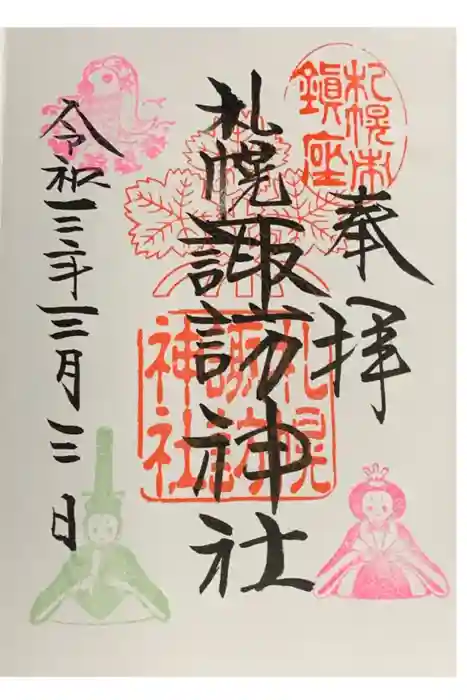 札幌市
鎮座
奉拝
札幌諏訪神社
札幌
諏訪
神社
令和三年三月三日